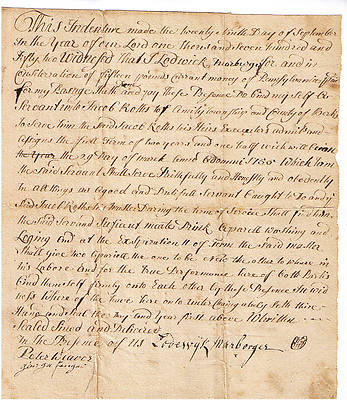 This Indenture made the twenty Ninth Day of September
In the Year of our Lord one thousand Seven hundred and
Fifty two Witneseth That I Lodwick Marburger for and in
Consideration of fifteen pounds Currant money of Pennsylvania
for my Passage Shall by these Presence Do bind my Self a
Servant unto Jacob Rolls of Amity township and County of Berks
to Serve him the Said Jacob Rolls his Heirs Executors admin and
assigns the full Term of two years and one half wich will
the Year the 29 Day of march 1755 Which Term
the Said Servant Shall Serve Faithfully and Honestly and obediently
In all things as a good and Dutifull Servant Ought to Do and
Said Jacob Rolls the master During the term of Service Shall find him
the Said Servand Sufficent meate Drink aparell Washing and
Loging and at the Expiration of Term the Said master
Shall give two aparell the one to be new the other to whare in
his Labors and for the True Performance here of both Parties
bind them Self firmly onto Each other by these Presence In wit
ness Whare of the have here onto Enter changeably Seth their
Hand and Seal the Day and Year first above Written
Sealed Sined and Delivered
in the Presence of US Lodewijk Marborger
Peter Weaver